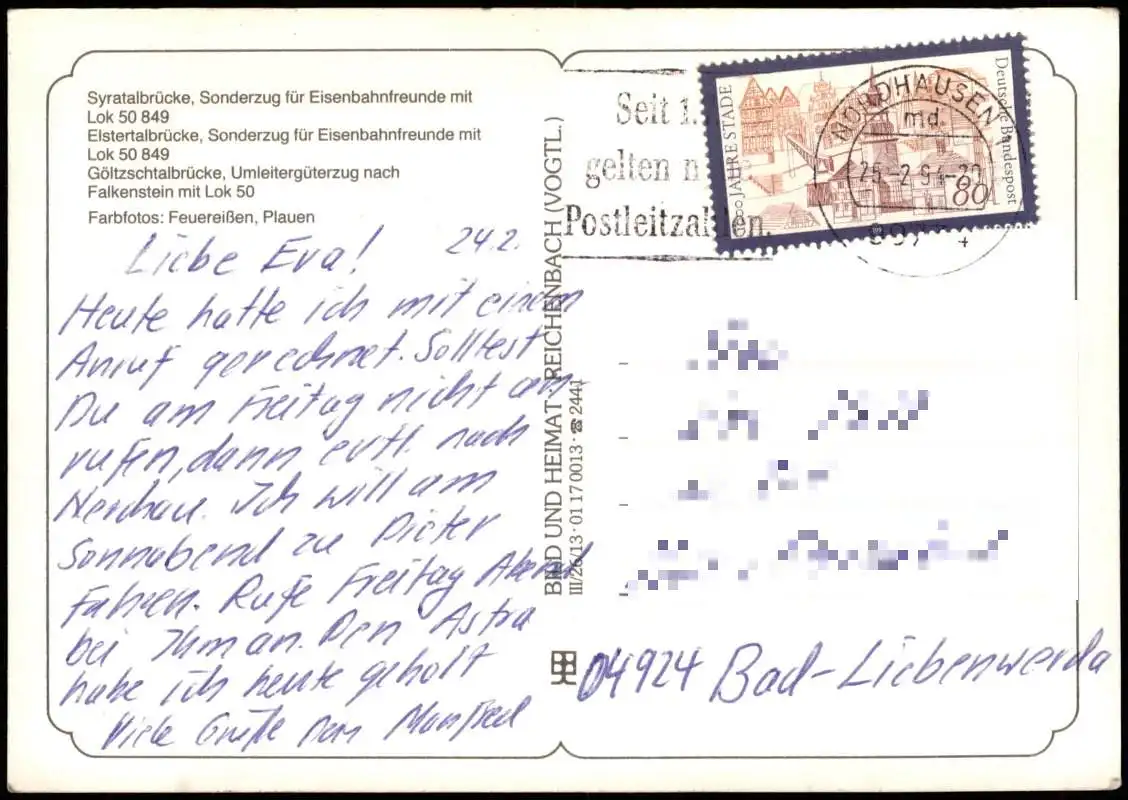 Syratalbrücke, Sonderzug für Eisenbahnfreunde mit
Lok 50 849
Elstertalbrücke, Sonderzug für Eisenbahnfreunde mit
Lok 50 849
Göltzschtalbrücke, Umleitergüterzug nach
Falkenstein mit Lok 50
Farbfotos: Feuereißen, Plauen
Liebe Eva! 24.2.
Heute hatte ich mit einem
Anruf gerechnet. Solltest
Du am Freitag nicht an-
rufen, dann evtl. nach
Nerchau. Ich will am
Sonnabend zu Dieter
fahren. Rufe Freitag Abend
bei Ihm an. Den Astra
habe ich heute geholt
Viele Grüße von Manfred
BILD UND HEIMAT · REICHENBACH (VOGTL.)
III/26/13 · 01 170013 · ☎ 2441
Seit 1.
gelten n
Postleitzahlen.
JAHRE STADE
Deutsche Bundespost
80
NORDHAUSEN
md.
25.-2.94-20
04924 Bad-Liebenwerda